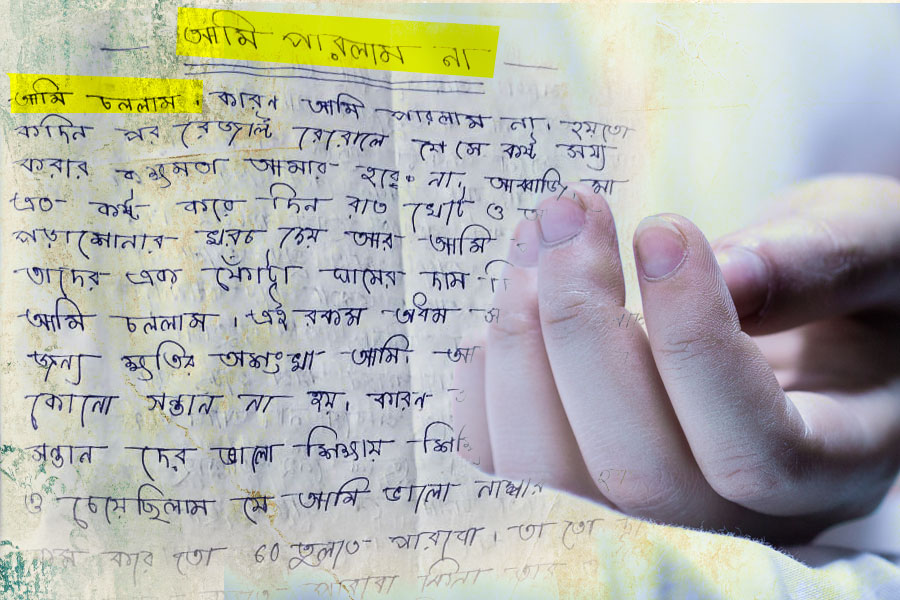 আমি পারলাম না
আমি চললাম। কারন আমি পারলাম না। হয়তো
কদিন পর রেজাল্ট বেরোলে যে সে কষ্ট সহ্য
করার ক্ষমতা আমার হবে না। আব্বাজি, মা
এত কষ্ট করে দিন রাত খেটে ও
পড়াশোনার খরচ দেয় আর আমি
তাদের এক ফোঁটা ঘামের দাম
আমি চললাম। এই রকম অধম
জন্য ক্ষতির আশংখা আমি। আ
কোনো সন্তান না হয়। কারন
সন্তান দের ভালো শিক্ষায়
ও চেয়েছিলাম যে আমি ভালো নাম্বার
করে হতো 60 তুলতে পারবো। তা তো
পারবো কিনা তার